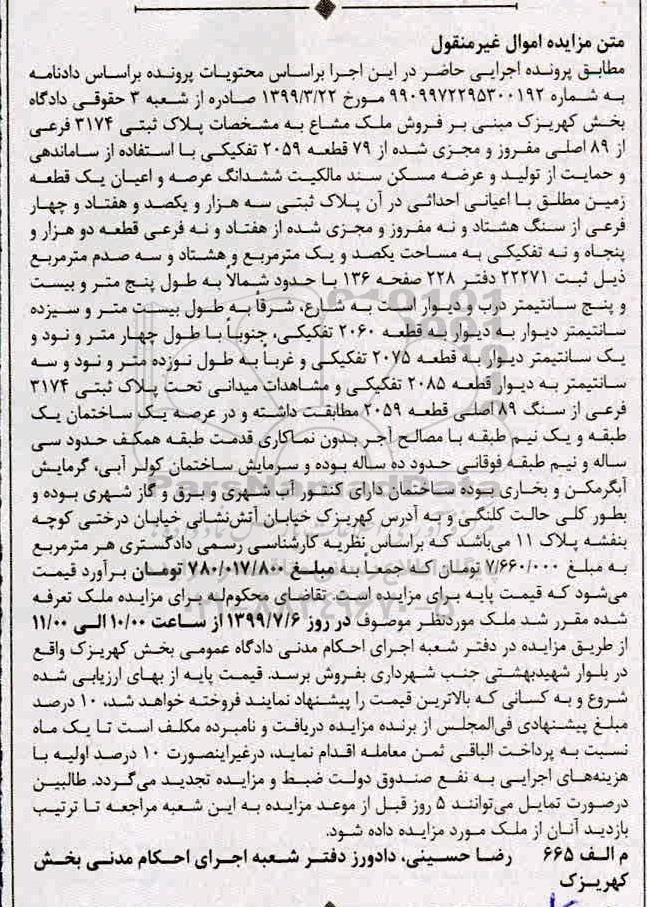 متن مزایده اموال غیرمنقول
مطابق پرونده اجرایی حاضر در این اجرا براساس محتویات پرونده براساس دادنامه
به شماره ۹۹۰۹۹۷۲۲۹۵۳۰۰۱۹۲ مورخ ۱۳۹۹/۳/۲۲ صادره از شعبه ۳ حقوقی دادگاه
بخش کهریزک مبنی بر فروش ملک مشاع به مشخصات پلاک ثبتی ۳۱۷۴ فرعی
از ۸۹ اصلی مفروز و مجزی شده از ۷۹ قطعه ۲۰۵۹ تفکیکی با استفاده از ساماندهی
و حمایت از تولید و عرضه مسکن سند مالکیت ششدانگ عرصه و اعیان یک قطعه
زمین مطلق با اعیانی احداثی در آن پلاک ثبتی سه هزار و یکصد و هفتاد و چهار
فرعی از سنگ هشتاد و نه مفروز و مجزی شده از هفتاد و نه فرعی قطعه دو هزار و
پنجاه و نه تفکیکی به مساحت یکصد و یک مترمربع و هشتاد و سه صدم مترمربع
ذیل ثبت ۲۲۲۷۱ دفتر ۲۲۸ صفحه ۱۳۶ با حدود شمالاً به طول پنج متر و بیست
و پنج سانتیمتر درب و دیوار است به شارع، شرقاً به طول بیست متر و سیزده
سانتیمتر دیوار به دیوار به قطعه ۲۰۶۰ تفکیکی، جنوباً با طول چهار متر و نود و
یک سانتیمتر دیوار به قطعه ۲۰۷۵ تفکیکی و غرباً به طول نوزده متر و نود و سه
سانتیمتر به دیوار قطعه ۲۰۸۵ تفکیکی و مشاهدات میدانی تحت پلاک ثبتی ۳۱۷۴
فرعی از سنگ ۸۹ اصلی قطعه ۲۰۵۹ مطابقت داشته و در عرصه یک ساختمان یک
طبقه و یک نیم طبقه با مصالح آجر بدون نماکاری قدمت طبقه همکف حدود سی
ساله و نیم طبقه فوقانی حدود ده ساله بوده و سرمایش ساختمان کولر آبی، گرمایش
آبگرمکن و بخاری بوده ساختمان دارای کنتور آب شهری و برق و گاز شهری بوده و
بطور کلی حالت کلنگی و به آدرس کهریزک خیابان آتش‌نشانی خیابان درختی کوچه
بنفشه پلاک ۱۱ می‌باشد که براساس نظریه کارشناسی رسمی دادگستری هر مترمربع
به مبلغ ۷/۶۶۰/۰۰۰ تومان که جمعاً به مبلغ ۷۸۰/۰۱۷/۸۰۰ تومان برآورد قیمت
می‌شود که قیمت پایه برای مزایده است. تقاضای محکوم‌له برای مزایده ملک تعرفه
شده مقرر شد ملک موردنظر موصوف در روز ۱۳۹۹/۷/۶ از ساعت ۱۰/۰۰ الی ۱۱/۰۰
از طریق مزایده در دفتر شعبه اجرای احکام مدنی دادگاه عمومی بخش کهریزک واقع
در بلوار شهیدبهشتی جنب شهرداری بفروش برسد. قیمت پایه از بهای ارزیابی شده
شروع و به کسانی که بالاترین قیمت را پیشنهاد نمایند فروخته خواهد شد، ۱۰ درصد
مبلغ پیشنهادی فی‌المجلس از برنده مزایده دریافت و نامبرده مکلف است تا یک ماه
نسبت به پرداخت الباقی ثمن معامله اقدام نماید، درغیراینصورت ۱۰ درصد اولیه با
هزینه‌های اجرایی به نفع صندوق دولت ضبط و مزایده تجدید می‌گردد. طالبین
درصورت تمایل می‌توانند ۵ روز قبل از موعد مزایده به این شعبه مراجعه تا ترتیب
بازدید آنان از ملک مورد مزایده داده شود.
م الف ۶۶۵ رضا حسینی، دادورز دفتر شعبه اجرای احکام مدنی بخش
کهریزک
ParsNamadData